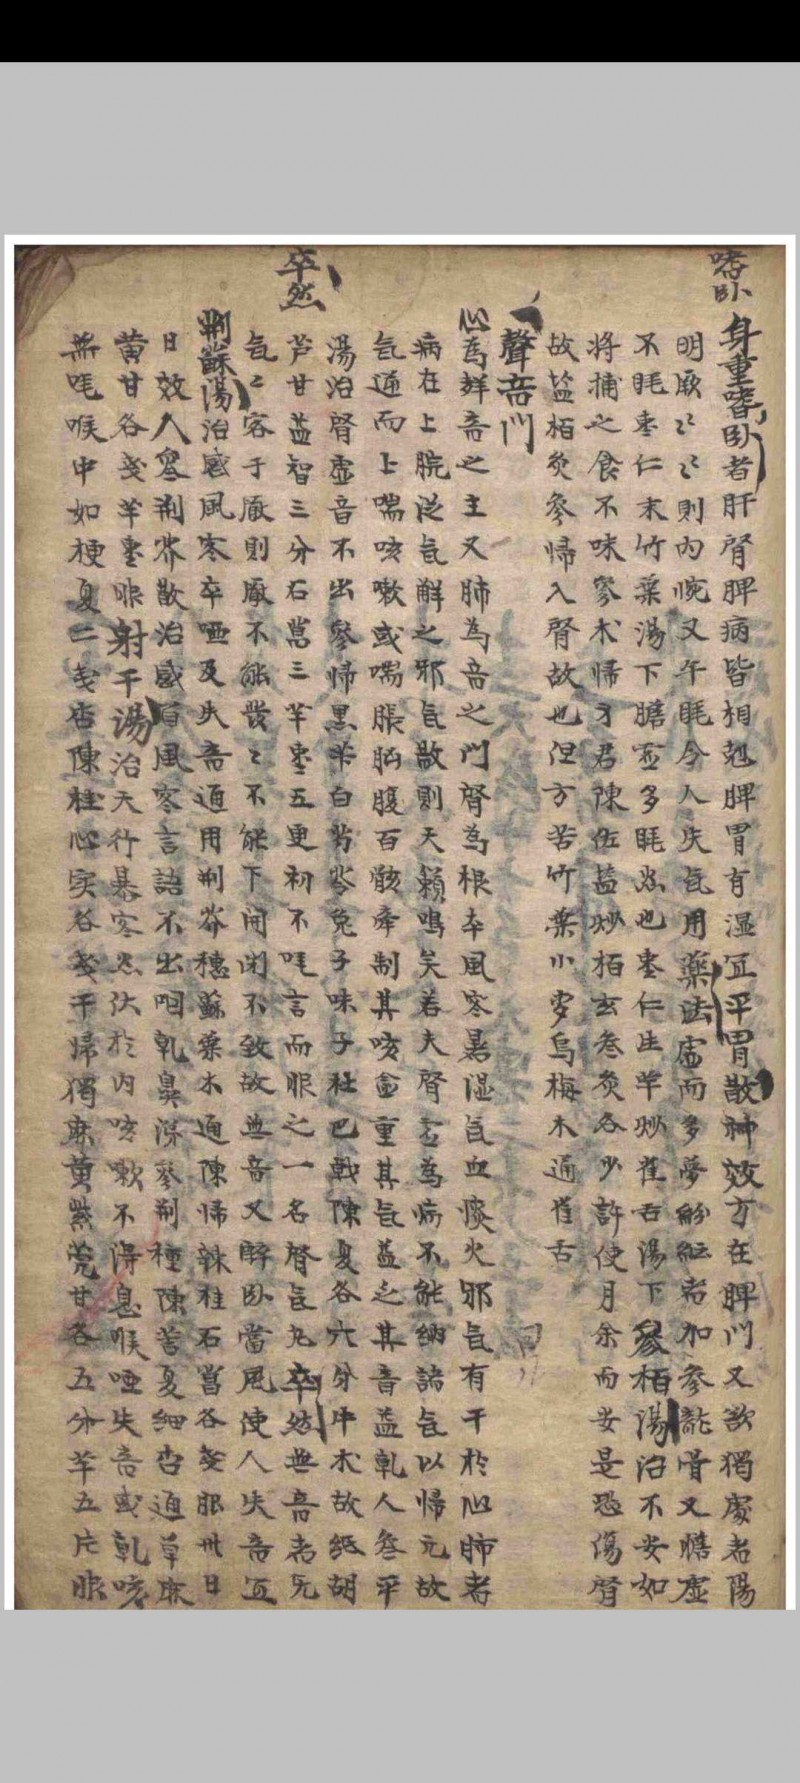 嗜卧
身重嗜卧者肝腎脾病皆相尅脾胃有湿宜平胃散神效方在脾門又欲獨處者陽
明厥〻〻則內惋又午眊令人失气用藥法虚而多夢紛紜者加参龍骨又膽虚
不眊枣仁末竹葉湯下膽实多眊炒也枣仁生芉炒雀舌湯下參栢湯治不安如
将捕之食不味參术帰才君陳佐益炒栢玄叁炙各少許使月余而安是恐傷腎
故益栢炙参帰入腎故也但方苦竹葉小麥烏梅木通雀舌
聲音門
心為聲音之主又肺為音之門腎為根本風寒暑湿气血痰火邪气有干於心肺者
病在上脘泛气解之邪气散則天籟鳴矣若夫腎虚為病不能納諸气以帰元故
气逆而上喘咳嗽或喘脹胸腹百骸牽制其咳愈重其气益乏其音益乹人参平
湯治腎虚音不出參帰黒芐白芍苓兔子味子杜巴戟陳夏各六分牛木故紙胡
卒然
芦甘益智三分石菖三芉枣五更初不吒言而服之一名腎气丸卒然無音者旡
气〻客于厭則厭不能發〻不能下闭闭不致故無音又醉卧當風使人失音宜
荆蘇湯治感風寒卒啞及失音通用荆芥穗蘇藥木通陳帰辣桂石菖各戔服卅日
日效人參荆芥散治感冒風寒言語不出咽乹鼻滞參荆種陳苦夏细杏通草麻
黄甘各戔芉枣服射干湯治天行暴寒热伏於内咳嗽不得息喉啞失音或乹咳
無吒喉中如梗夏二戔杏陳桂心实各戔干帰獨麻黄紫莞甘各五分芉五片服